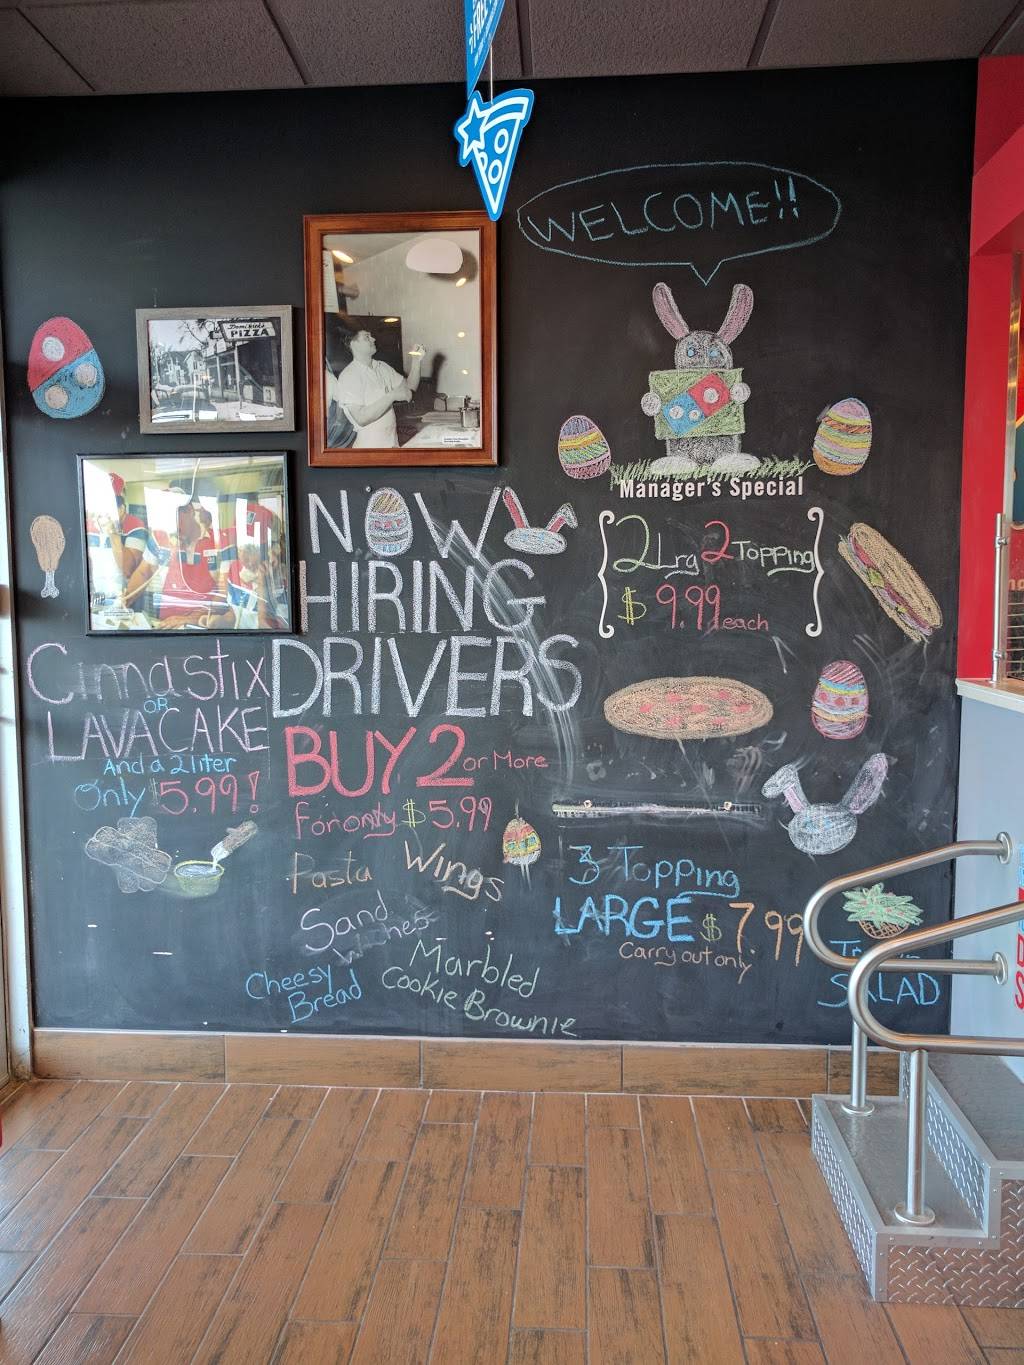 WELCOME!!
Dominick's
PIZZA
Manager's Special
2 Lrg 2 Topping
$ 9.99 each
NOW
HIRING
DRIVERS
Cinnastix
OR
LAVA CAKE
And a 2 liter
Only $5.99!
BUY 2 or More
For only $ 5.99
Pasta Wings
Sand
wiches
Cheesy
Bread
Marbled
Cookie Brownie
3 Topping
LARGE $ 7.99
Carry out only
SALAD